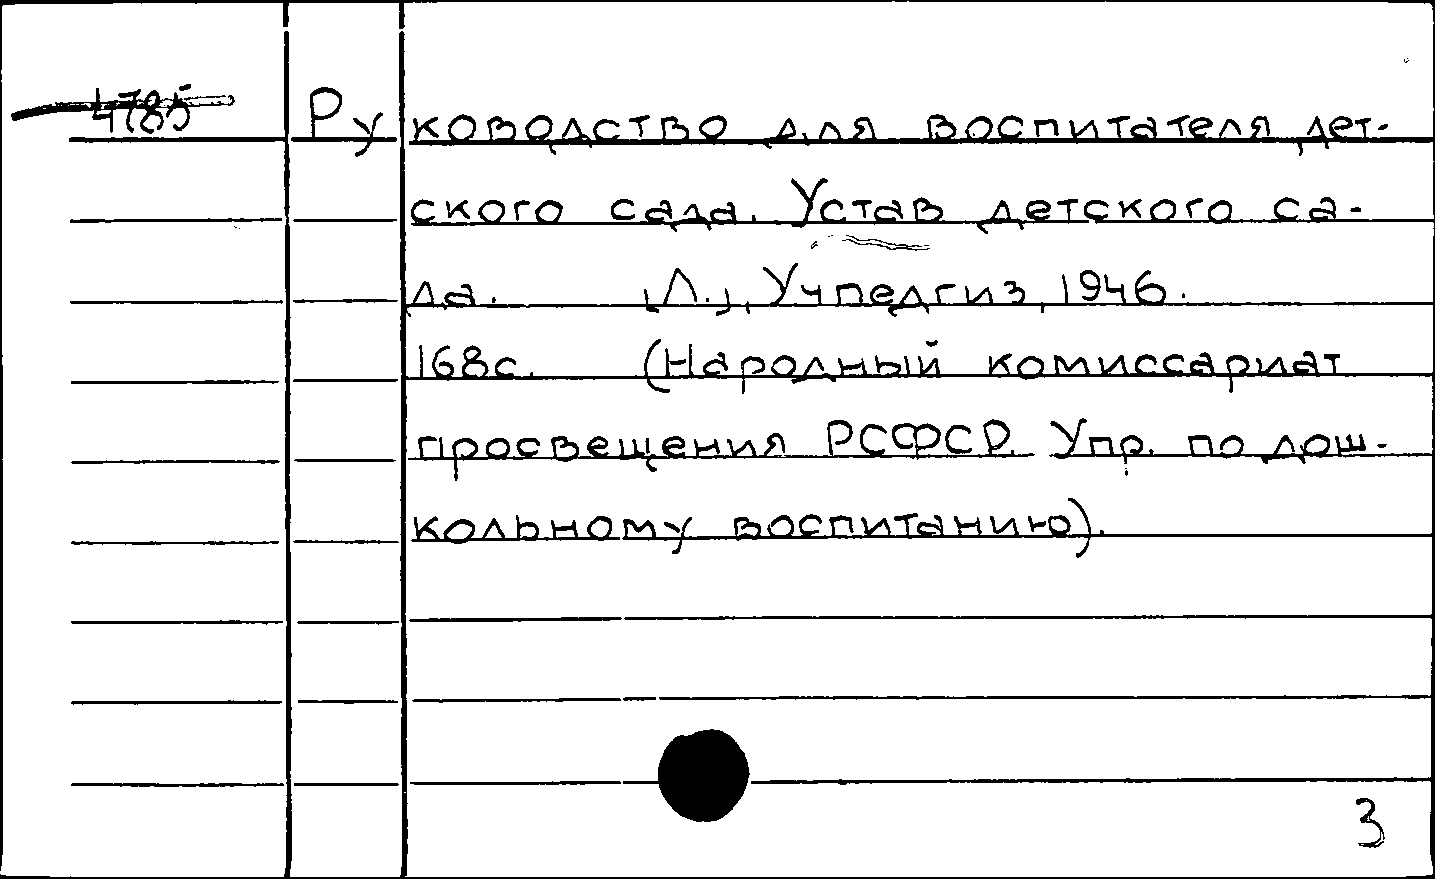 4785 Руководство для воспитателя дет-
ского сада. Устав детского са-
да. [Л.], Учпедгиз, 1946.
168с. (Народный комиссариат
просвещения РСФСР. Упр. по дош-
кольному воспитанию).
3